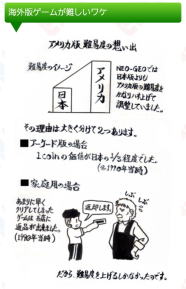 海外版ゲームが難しいワケ
アメリカ版 難易度の想い出
難易度のイメージ
日本
アメリカ
NEO-GEOでは
日本版よりも
アメリカ版の難易度を
かなり上げて
調整していました。
その理由は大きく分けて2つあります。
■アーケード版の場合
1coinの価値が日本の
程度でした。
(※1990年当時)
■家庭用の場合
あまりに早く
クリアしてしまった
ゲームは お店に
返品が出来ました。
(1990年当時)
返却します。
しぶ
しぶ
だから、難易度を上げるしかなかったのです。